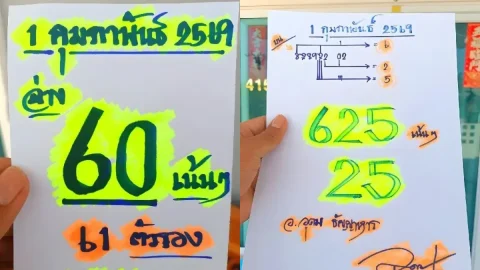 1 กุมภาพันธ์ 2569
ล่าง
60
เน้นๆ
61 ตัวรอง
1 กุมภาพันธ์ 2569
= 6
= 2
= 5
625
เน้นๆ
25
อ.อุดม ธัญญาหาร
415